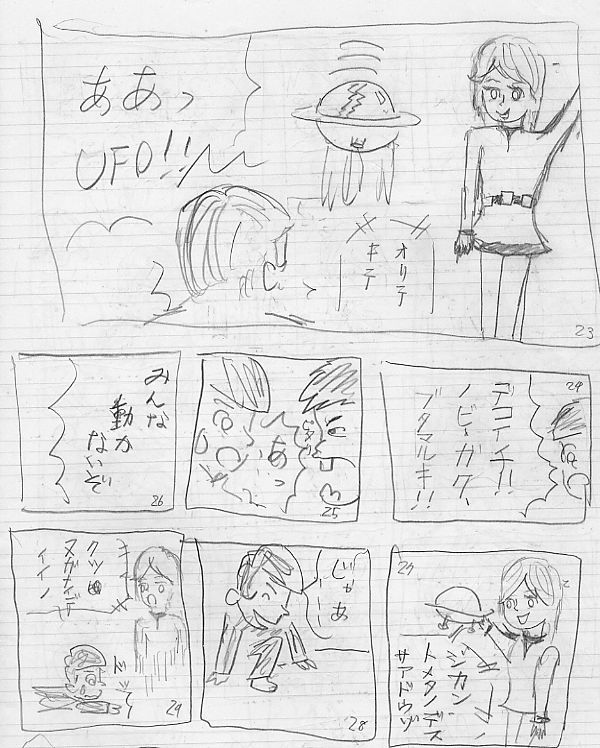 ああっ
UFO!!
オリテ
キテ
23
24
デコイチ!!
ノビ・ガク、
ブタマルキ!!
あっ
25
みんな
動か
ないぞ
26
ジカン
トメタノデス
サアドウゾ
じゃあ
28
クツ
ヌガナイデ
イイノ
29